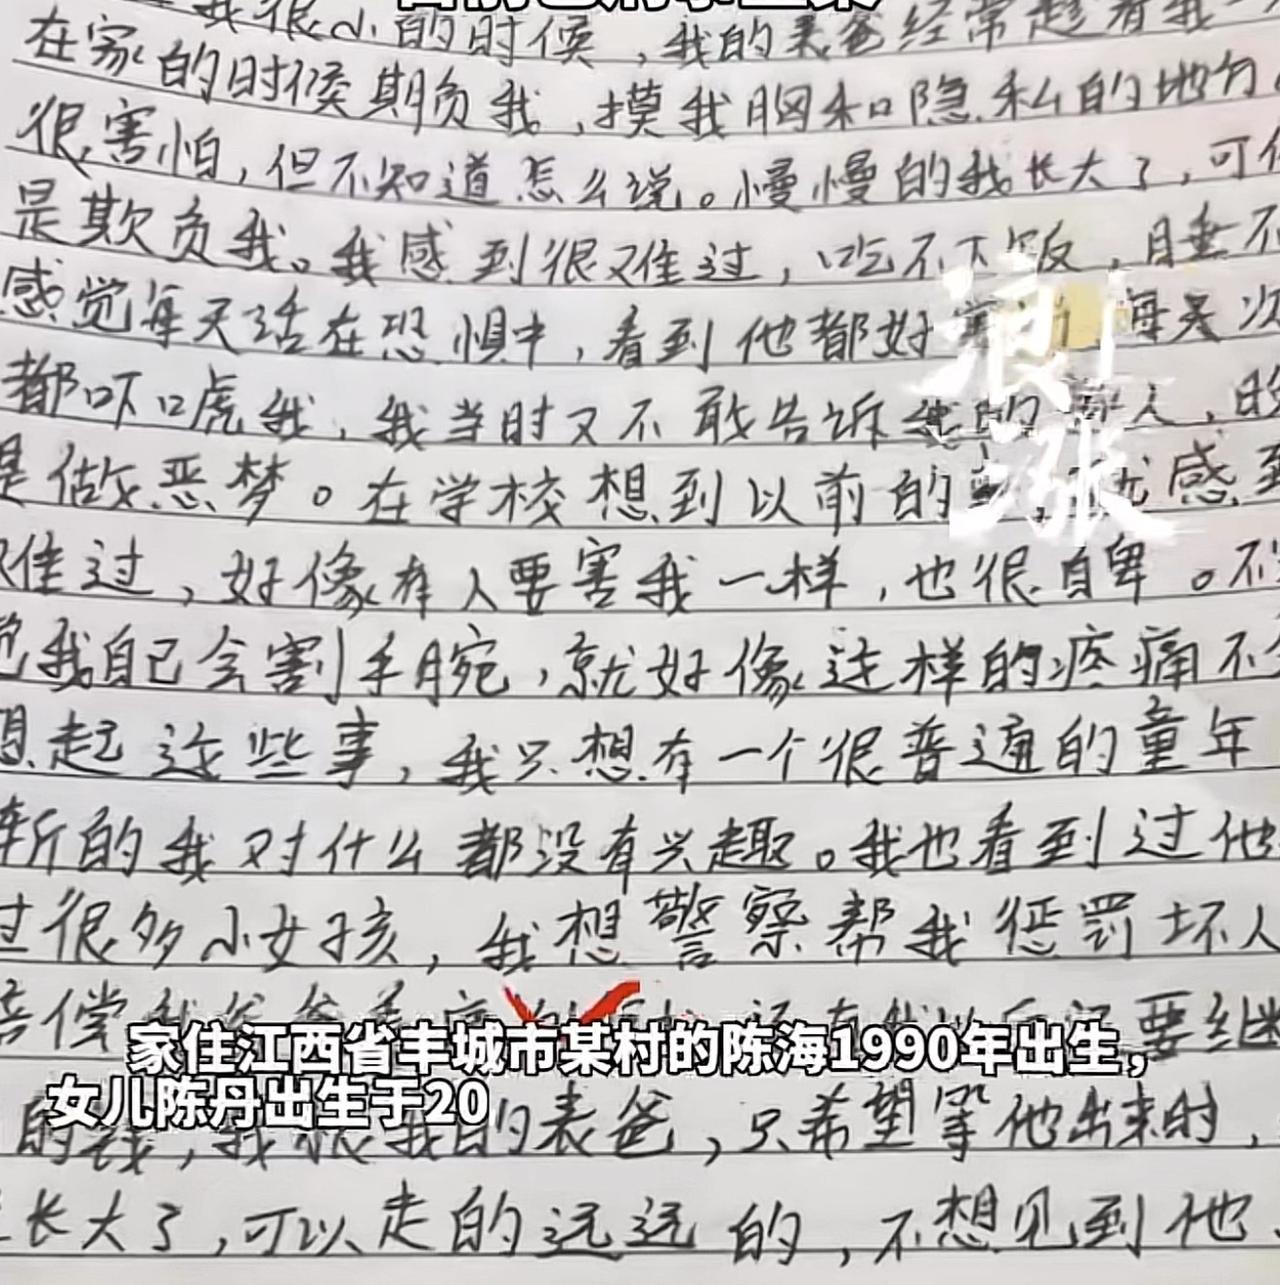 我很小的时候，我的表爸经常趁着我一
在家的时候期负我，摸我胸和隐私的地方
很害怕，但不知道怎么说。慢慢的我长大了，可
是欺负我。我感到很难过，吃不下饭，睡不
感觉每天活在恐惧中，看到他都好 每天次
都吓唬我，我当时又不敢告诉 人，
是做恶梦。在学校想到以前的 感到
难过，好像有人要害我一样，也很自卑。不
觉我自己会割手腕，就好像这样的疼痛不
想起这些事，我只想有一个很普通的童年
渐的我对什么都没有兴趣。我也看到过他
过很多小女孩，我想警察帮我惩罚坏人
赔偿 要继
家住江西省丰城市某村的陈海1990年出生，
女儿陈丹出生于20
的钱，我恨我的表爸，只希望等他出来时，
长大了，可以走的远远的，不想见到他
浪
涨